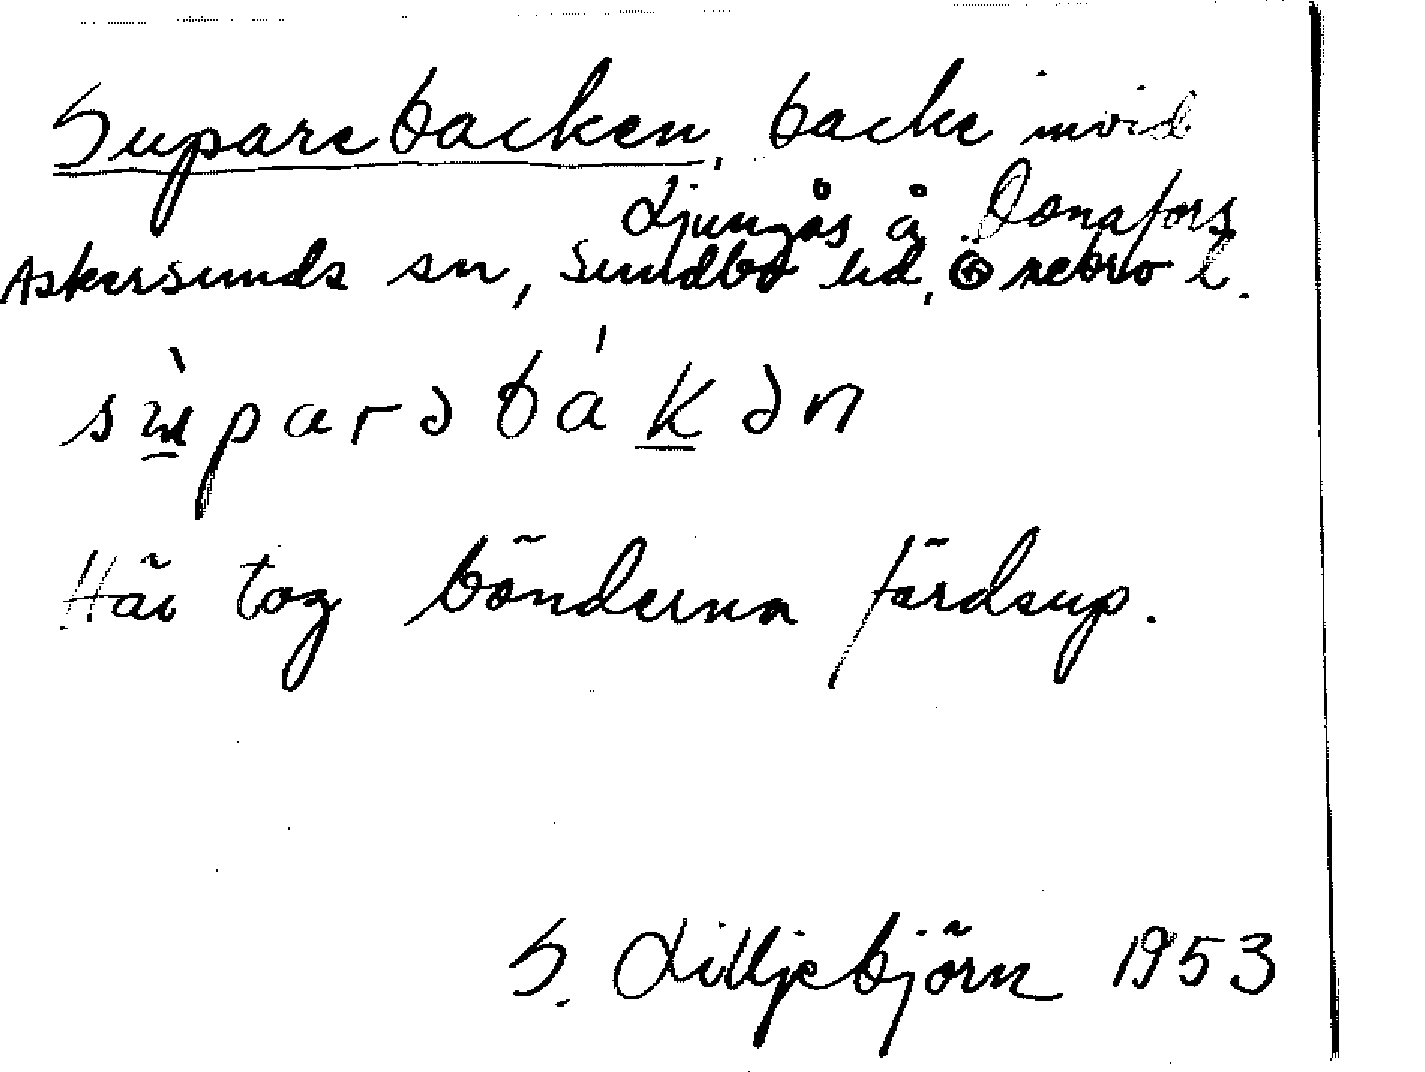 Suparebacken, backe invid
Ljungås å Donafors
Askersunds sn, Sundbo hd, Örebro l.
sùparəbákən
Här tog bönderna färdsup.
S. Liljebjörn 1953